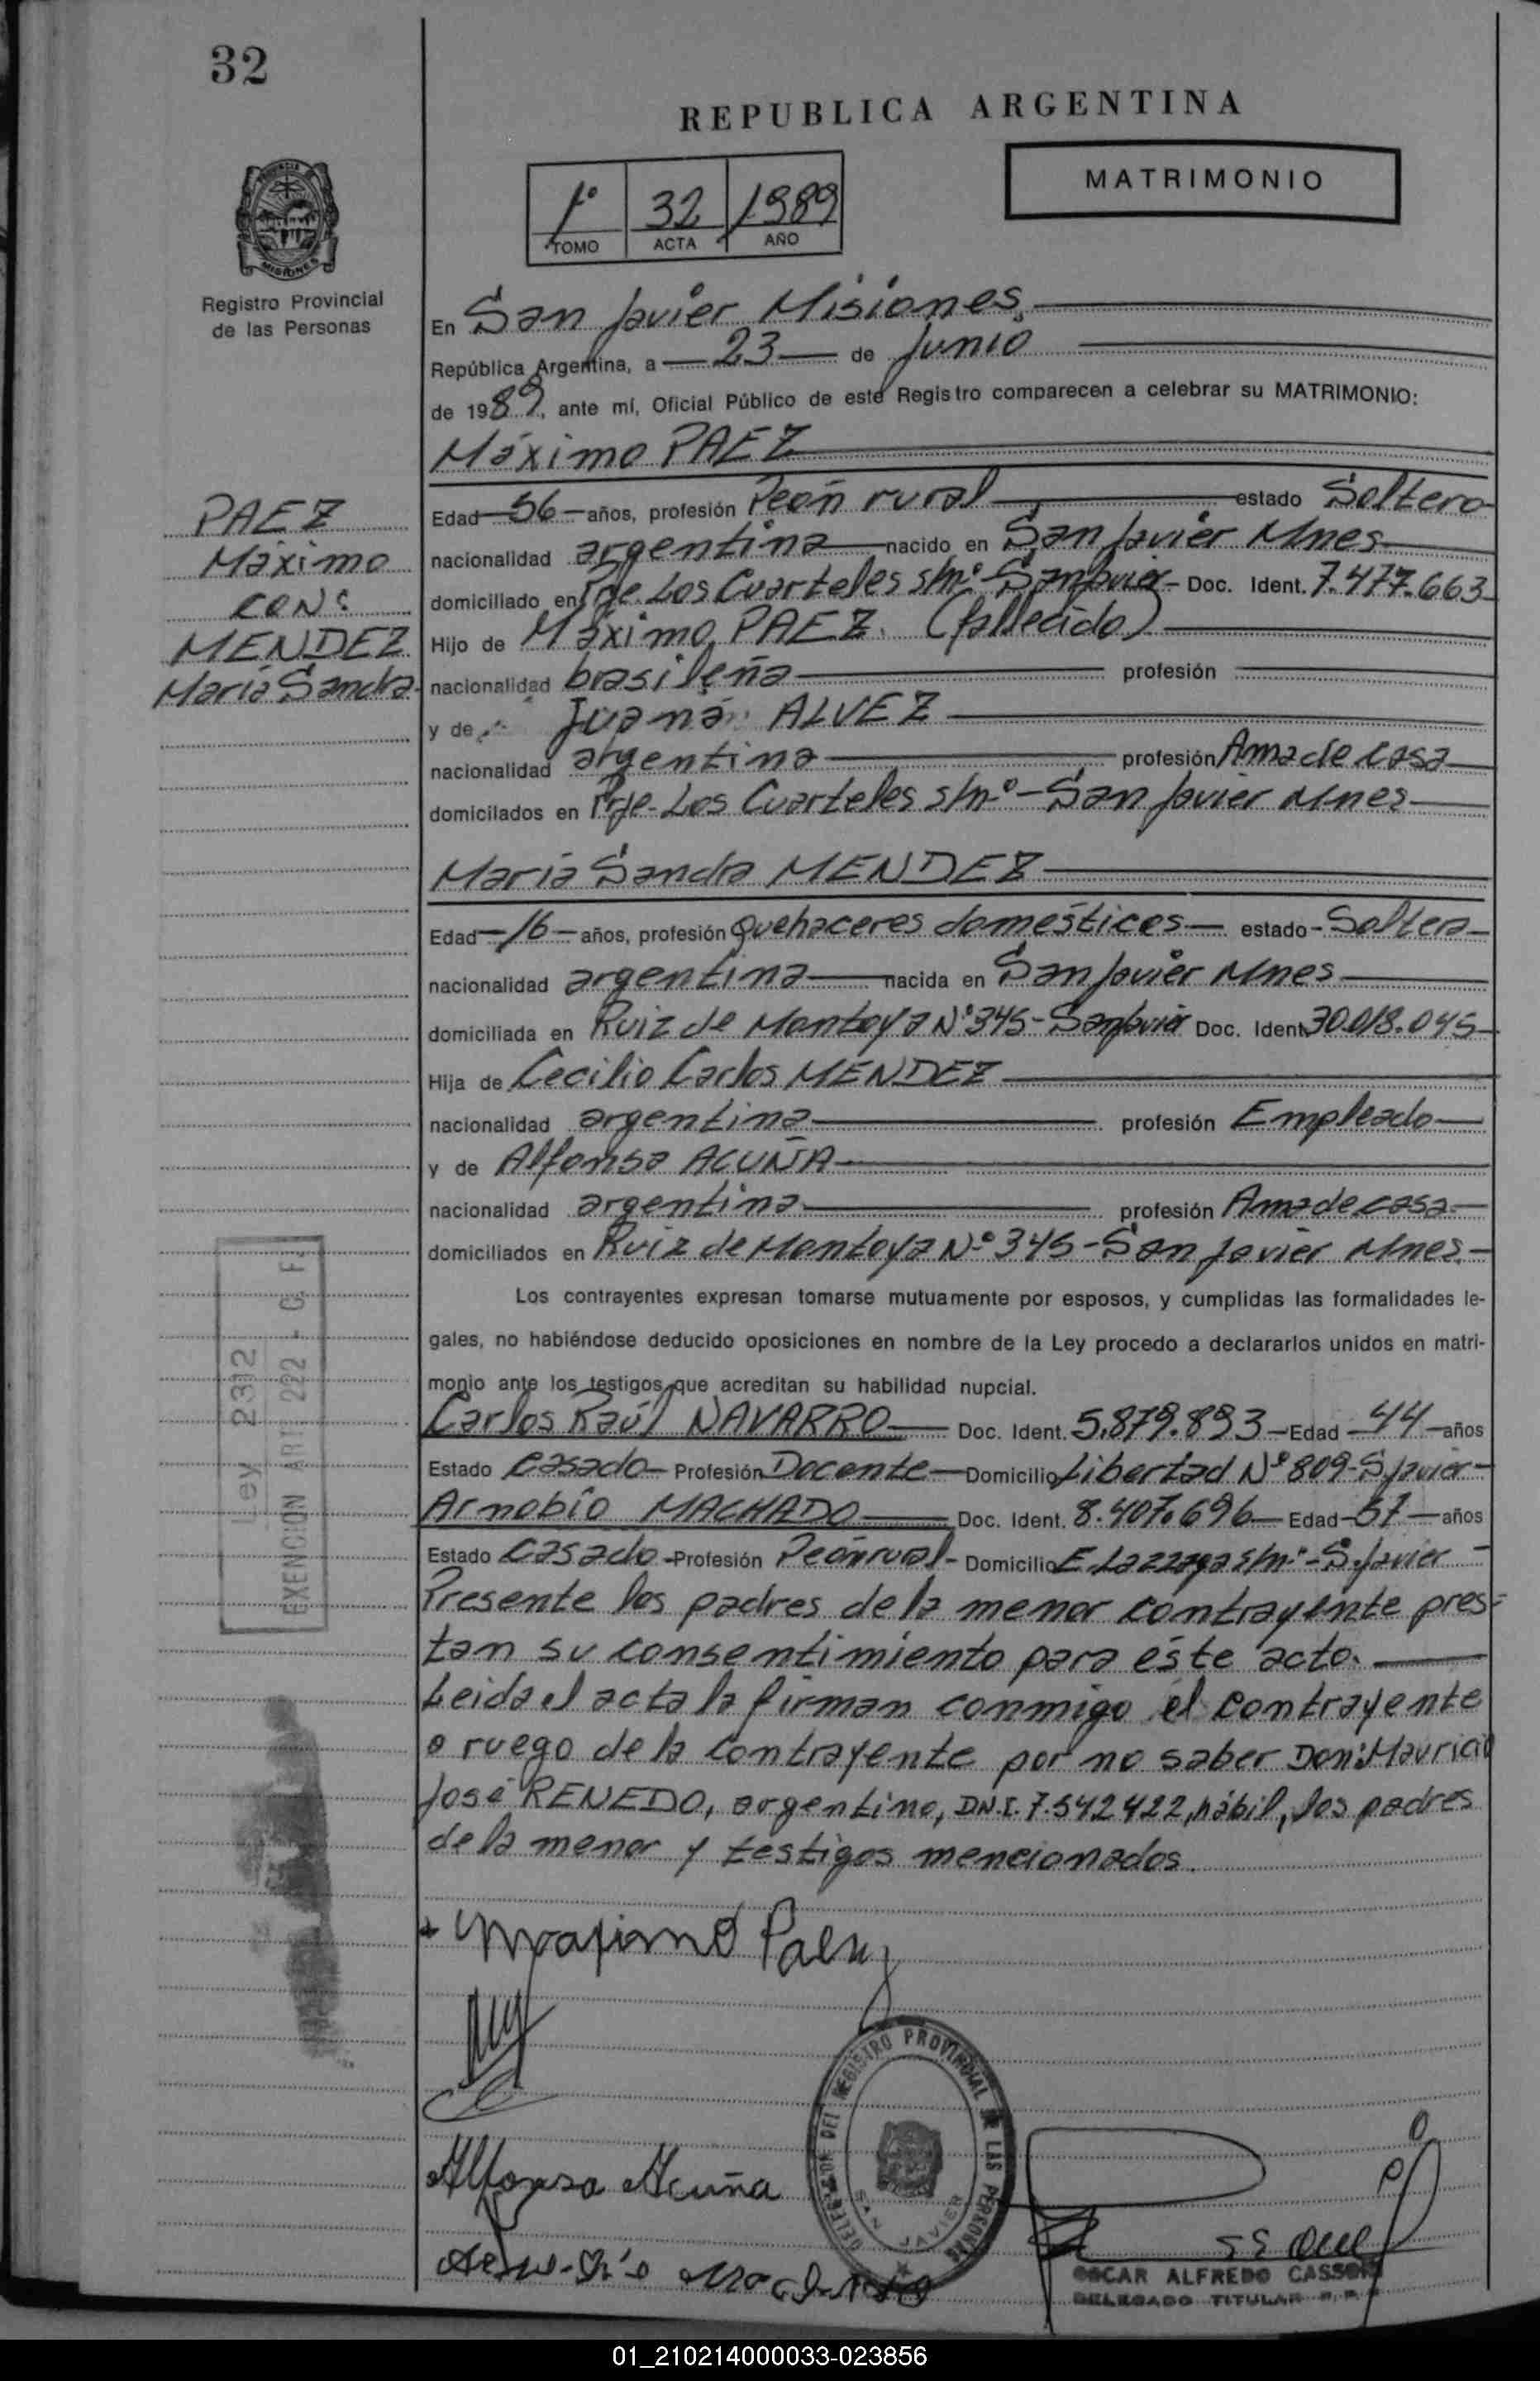 32
REPUBLICA ARGENTINA
MATRIMONIO
1º 32 1989
TOMO ACTA AÑO
PROVINCIA DE
MISIONES
Registro Provincial
de las Personas
En San Javier Misiones.
República Argentina, a 23 de Junio
de 1989, ante mí, Oficial Público de este Registro comparecen a celebrar su MATRIMONIO:
Máximo PAEZ
PAEZ
Máximo
CON:
MENDEZ
María Sandra
Edad 56 años, profesión Peón rural estado Soltero
nacionalidad argentina nacido en San Javier Mnes
domiciliado en Pje. Los Cuarteles s/nº - San Javier - Doc. Ident. 7.477.663
Hijo de Máximo PAEZ. (fallecido)
nacionalidad brasileña profesión
y de Juana ALVEZ
nacionalidad argentina profesión Ama de casa
domicilados en Pje. Los Cuarteles s/nº - San Javier Mnes
María Sandra MENDEZ
Edad 16 años, profesión quehaceres domésticos estado - Soltera
nacionalidad argentina nacida en San Javier Mnes
domiciliada en Ruiz de Montoya Nº 345 - San Javier Doc. Ident. 30.018.045
Hija de Cecilio Carlos MENDEZ
nacionalidad argentina profesión Empleado
y de Alfonsa ACUÑA
nacionalidad argentina profesión Ama de casa
domiciliados en Ruiz de Montoya Nº 345 - San Javier Mnes.
Los contrayentes expresan tomarse mutuamente por esposos, y cumplidas las formalidades le-
gales, no habiéndose deducido oposiciones en nombre de la Ley procedo a declararlos unidos en matri-
monio ante los testigos que acreditan su habilidad nupcial.
Carlos Raúl NAVARRO Doc. Ident. 5.879.893 Edad 44 años
Estado casado Profesión Docente Domicilio Libertad Nº 809 - S. Javier
Arnobio MACHADO Doc. Ident. 8.407.696 Edad 57 años
Estado casado Profesión Peón rural - Domicilio s/nº - S. Javier
Presente los padres de la menor contrayente pres=
tan su consentimiento para éste acto.
Leida el acta la firman conmigo el contrayente
a ruego de la contrayente por no saber Don: Mauricio
José RENEDO, argentino, DN.I. 7.542422, hábil, los padres
de la menor y testigos mencionados.
Ley 2312
EXENCION ART 222 - C. F.
Maximo Paez
Alfonsa Acuña
DELEGACION DEL REGISTRO PROVINCIAL DE LAS PERSONAS
SAN JAVIER
OSCAR ALFREDO
DELEGADO TITULAR
01_210214000033-023856